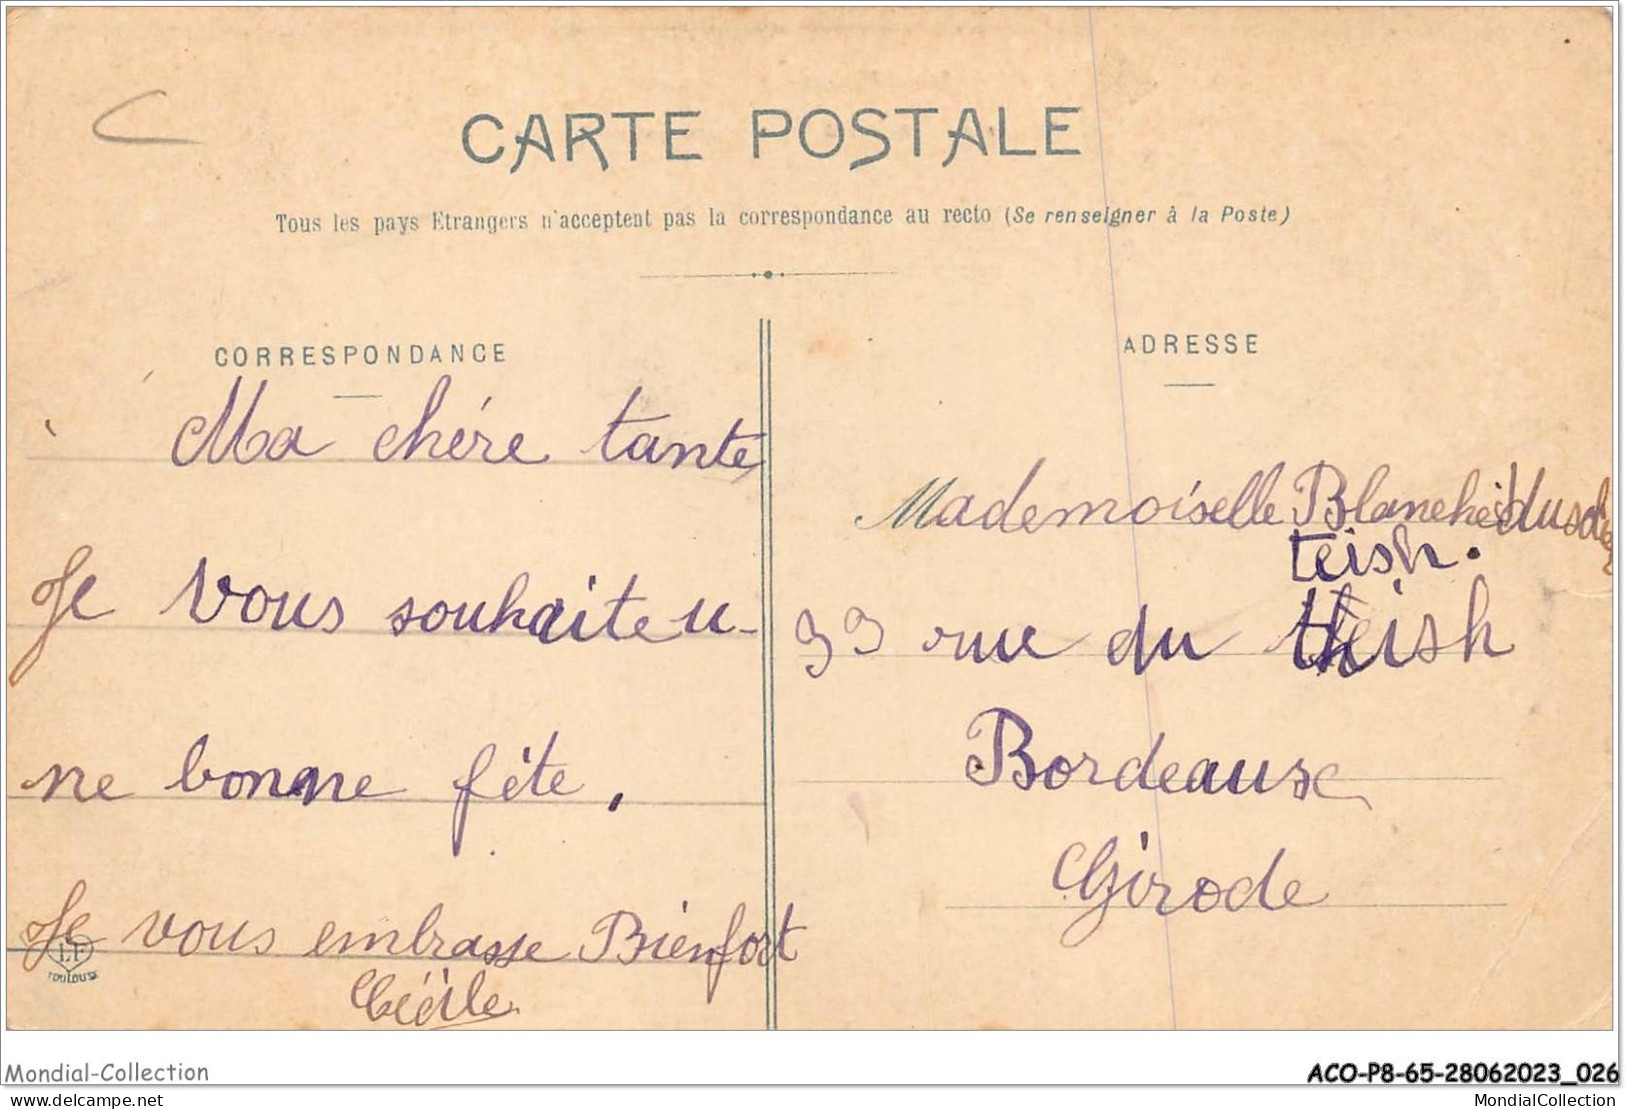 CARTE POSTALE
Tous les pays Etrangers n'acceptent pas la correspondance au recto (Se renseigner à la Poste)
CORRESPONDANCE
Ma chére tante
Je vous souhaite u-
ne bonne féte.
Je vous embrasse Bienfort
Cécile
LF
TOULOUSE
ADRESSE
Mademoiselle Blanche
teish.
33 rue du teish
Bordeause
Girode
Mondial-Collection
ACO-P8-65-28062023_026
delcampe.net
MondialCollection